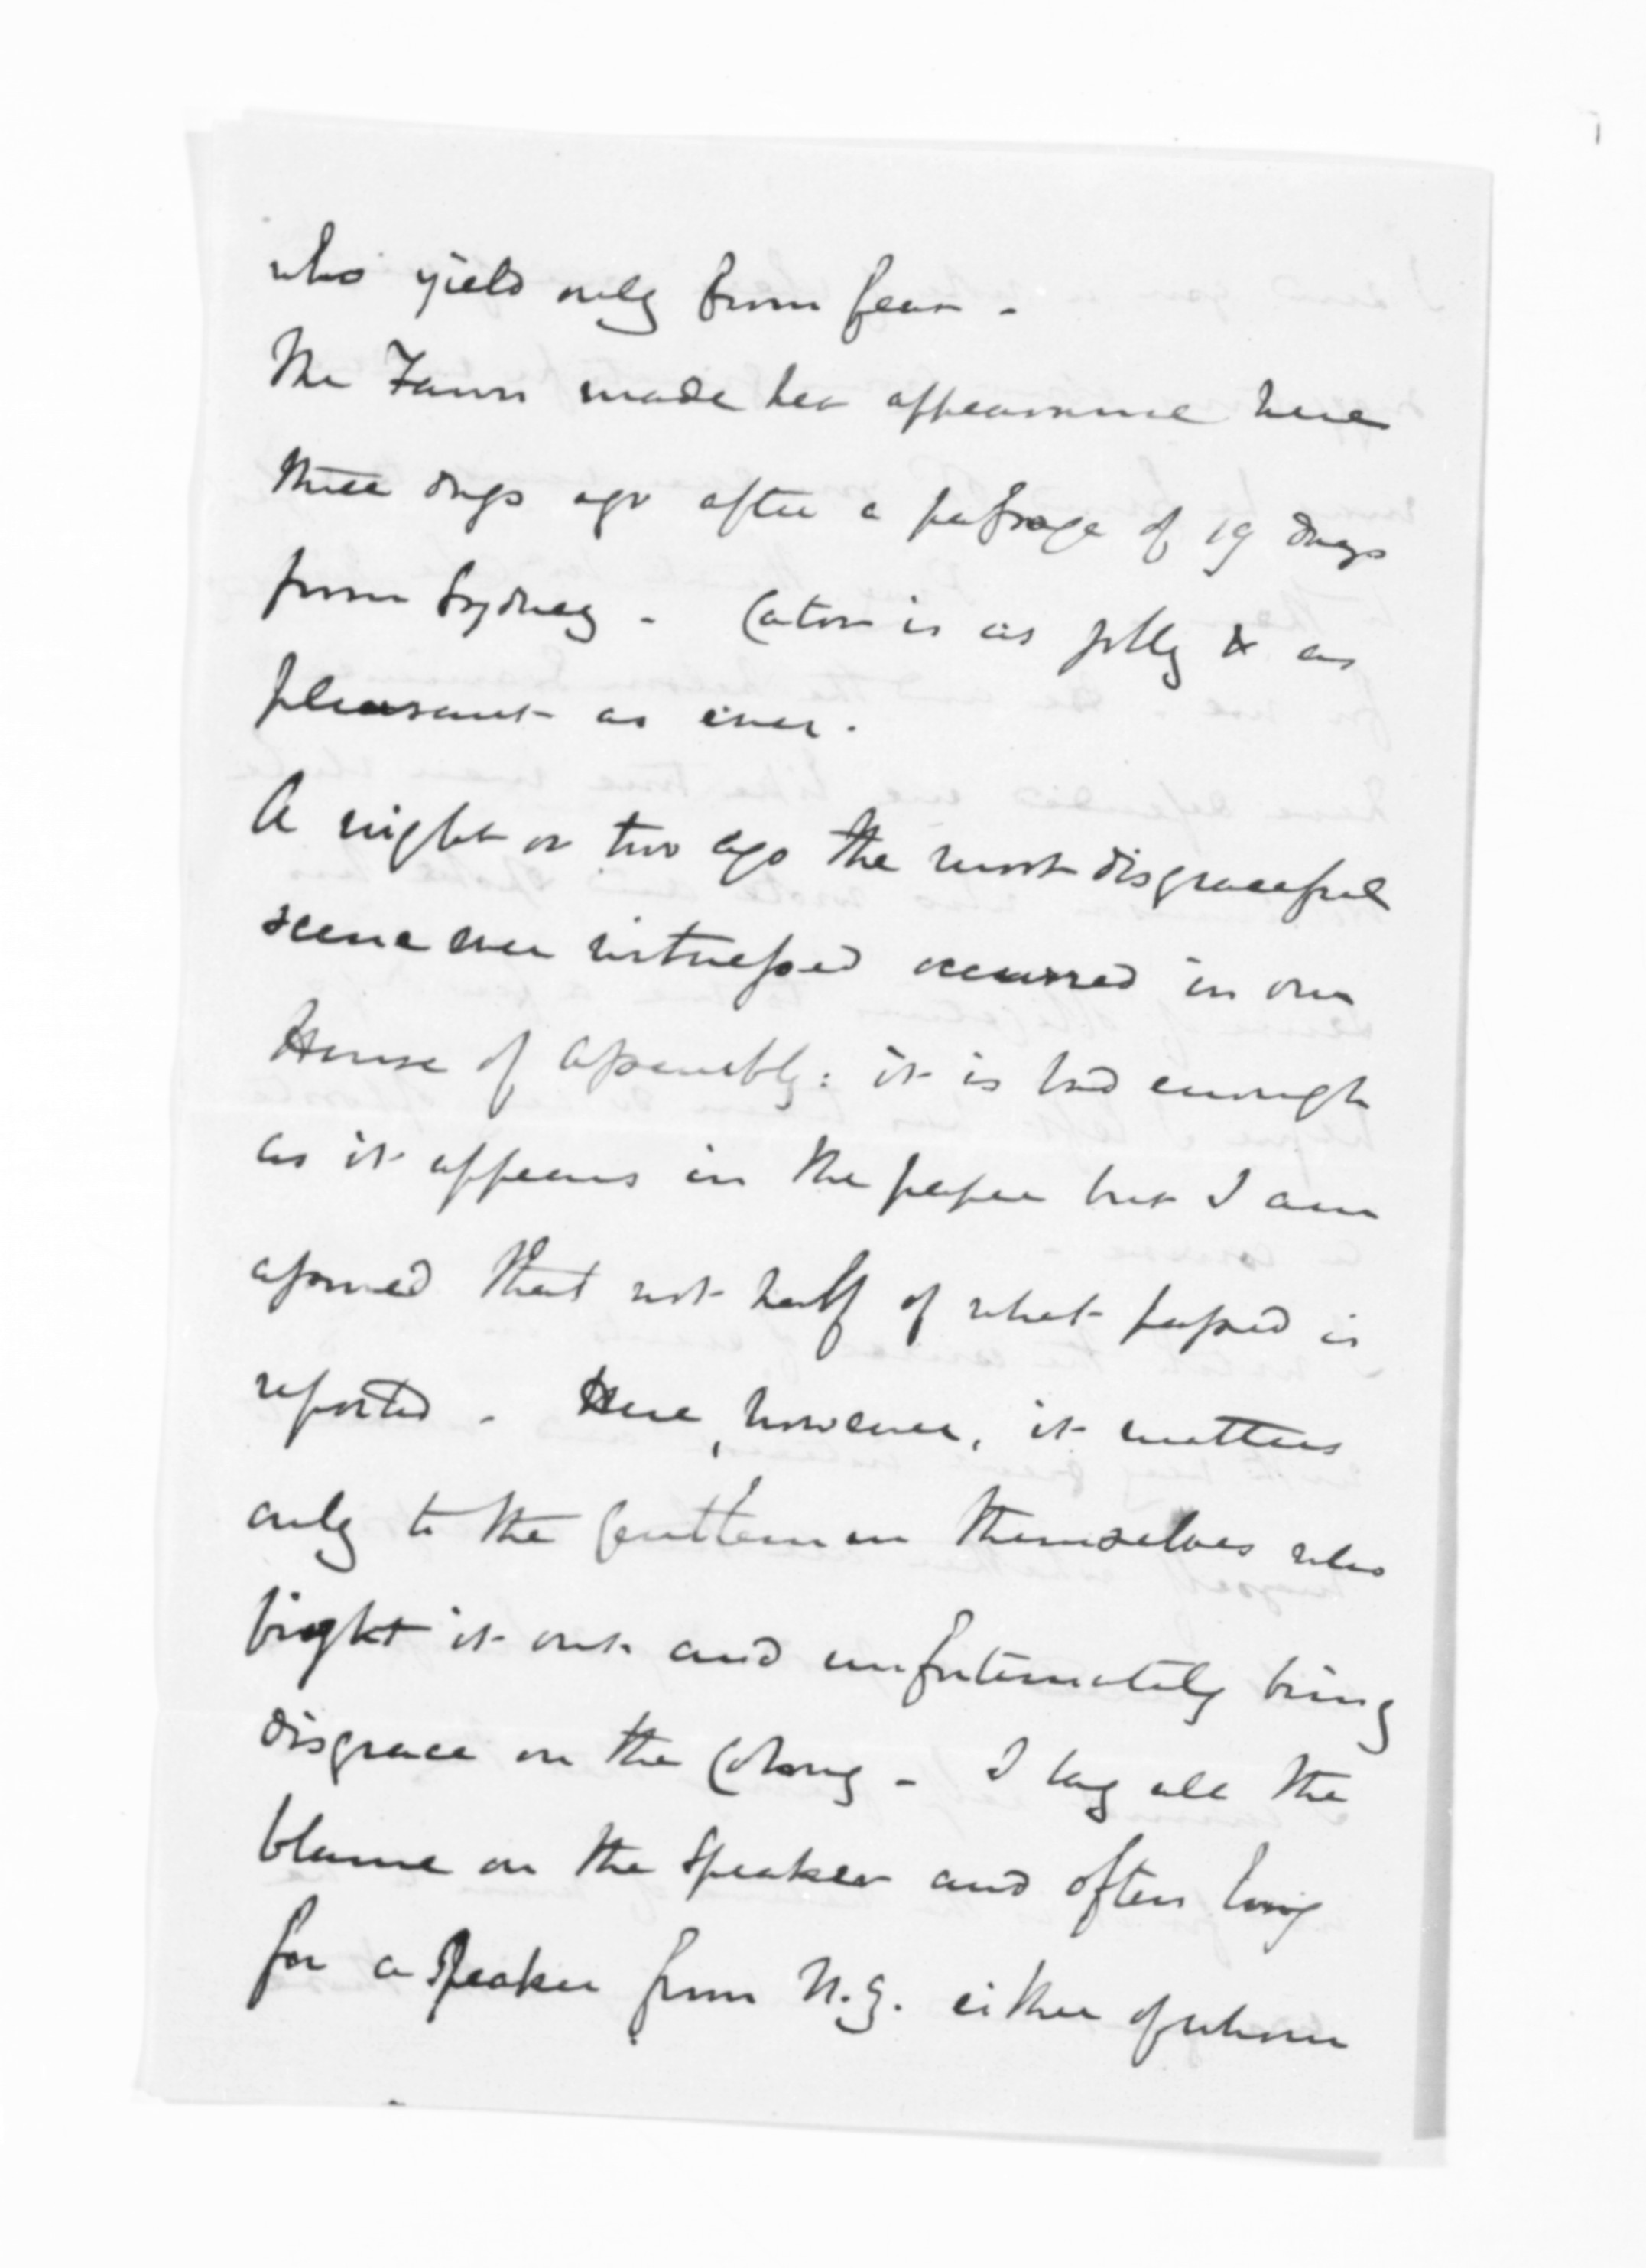 who yield only from fear -
The Fawn made her appearance here
three days ago after a passage of 19 days
from Sydney - Cator is as jolly & as
pleasant as ever.
A night or two ago the most disgraceful
scene ever witnessed occurred in our
House of Assembly: it is bad enough
as it appears in the paper but I am
assured that not half of what passed is
reported - Here, however, it matters
only to the gentlemen themselves who
fight it out and unfortunately bring
disgrace on the Colony - I lay all the
blame on the Speaker and often long
for a Speaker from N.Z. either of whom